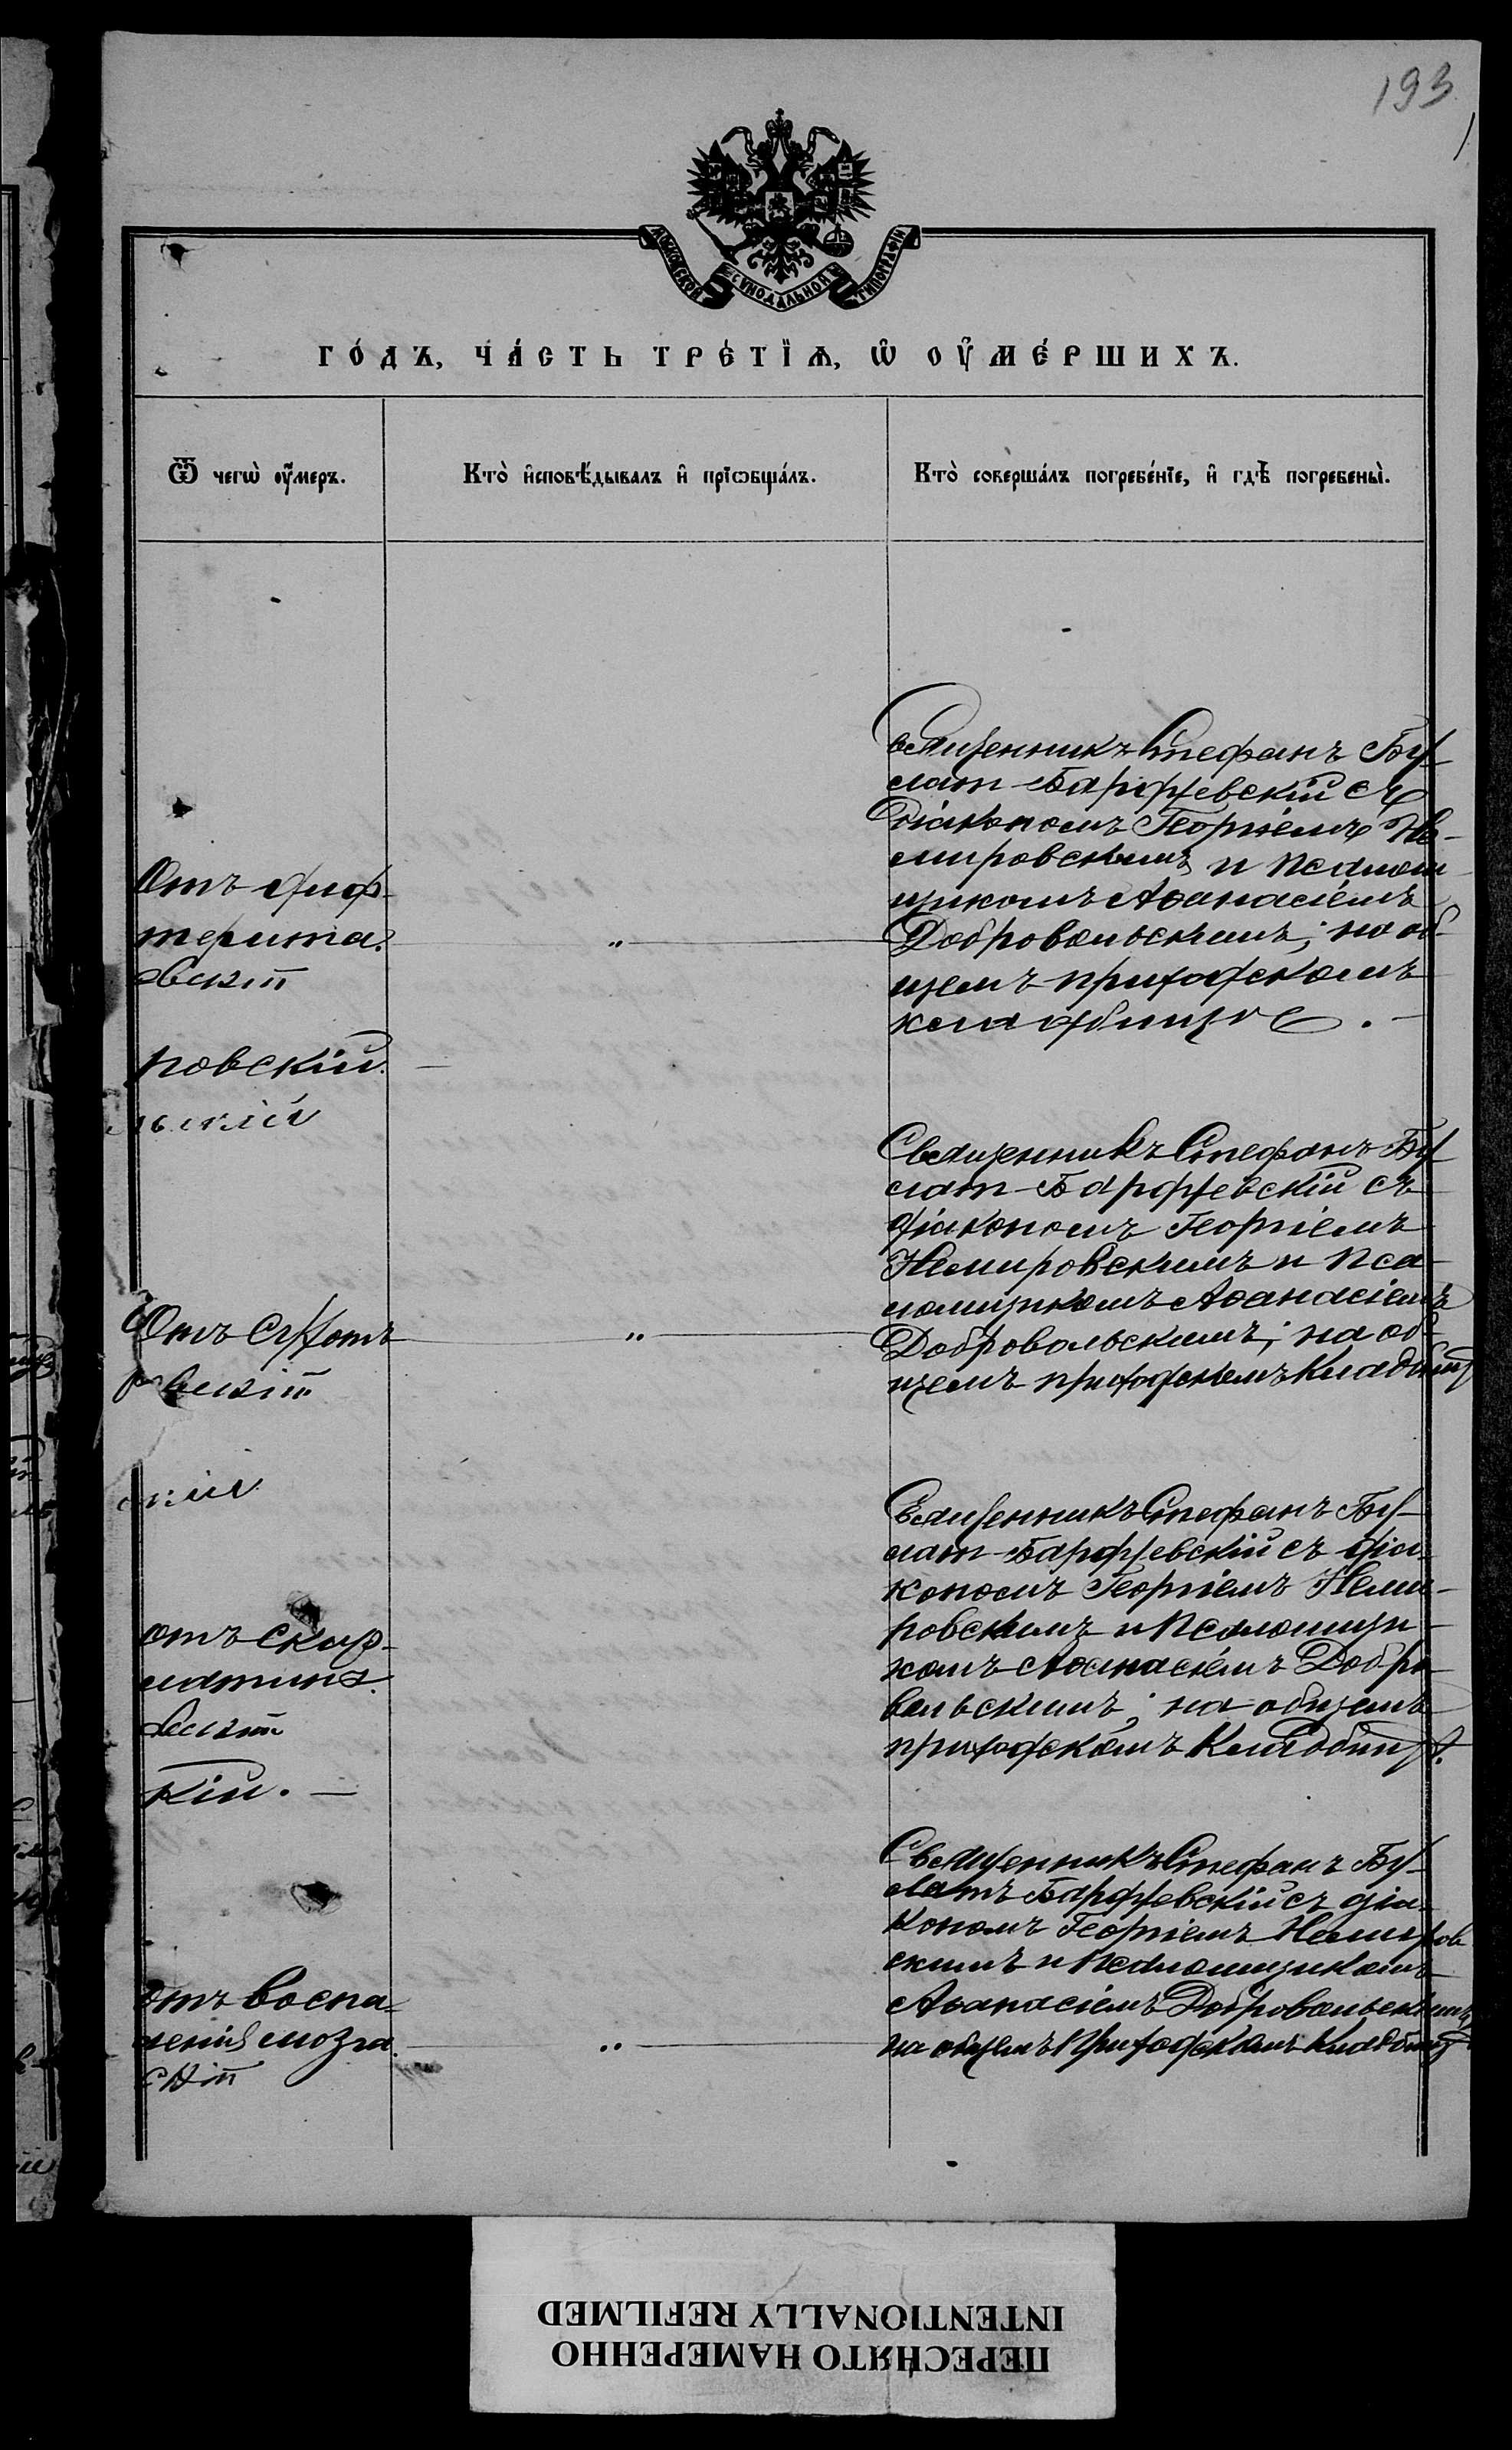 193
МОСКОВСКОЙ СѴНОДАЛЬНОЙ ТИПОГРАФІИ
ГО́ДЪ, ЧА́СТЬ ТРЕ́ТЇѦ, Ѡ҆ ОУ҆МЕ́РШИХЪ.
Ѿ чегѡ̀ оу҆́меръ.
Кто̀ и҆сповѣ́дывалъ и҆ прїѡбща́лъ.
Кто̀ соверша́лъ погребе́нїе, и҆ гдѣ̀ погребены̀.
Отъ диф-
терита.
"
Священникъ Стефанъ Бу-
лат-Барджевскій съ
діакономъ Георгіемъ Не-
мировскимъ и псалом
щикомъ Аѳанасіемъ
Добровольскимъ; на об-
щемъ приходскомъ
кладбищѣ. —
ровскій. —
льскій
Отъ
"
Священникъ Стефанъ Бу
лат-Барджевскій съ
діакономъ Георгіемъ
Немировскимъ и пса-
ломщикомъ Аѳанасіемъ
Добровольскимъ; на об-
щемъ приходскомъ кладбищѣ
скій
отъ скар-
латина.
Священникъ Стефанъ Бу-
лат-Барджевскій съ діа-
кономъ Георгіемъ Неми-
ровскимъ и псаломщи-
комъ Аѳанасіемъ Добро
вольскимъ; на общемъ
приходскомъ кладбищѣ.
кій. —
отъ воспа-
ленія мозга.
"
Священникъ Стефанъ Бу-
латъ Барджевскій съ діа-
кономъ Георгіемъ Немиров
скимъ и псаломщикомъ
Аѳанасіемъ Добровольскимъ,
на общемъ приходскомъ кладбищѣ
ПЕРЕСНЯТО НАМЕРЕННО
INTENTIONALLY REFILMED